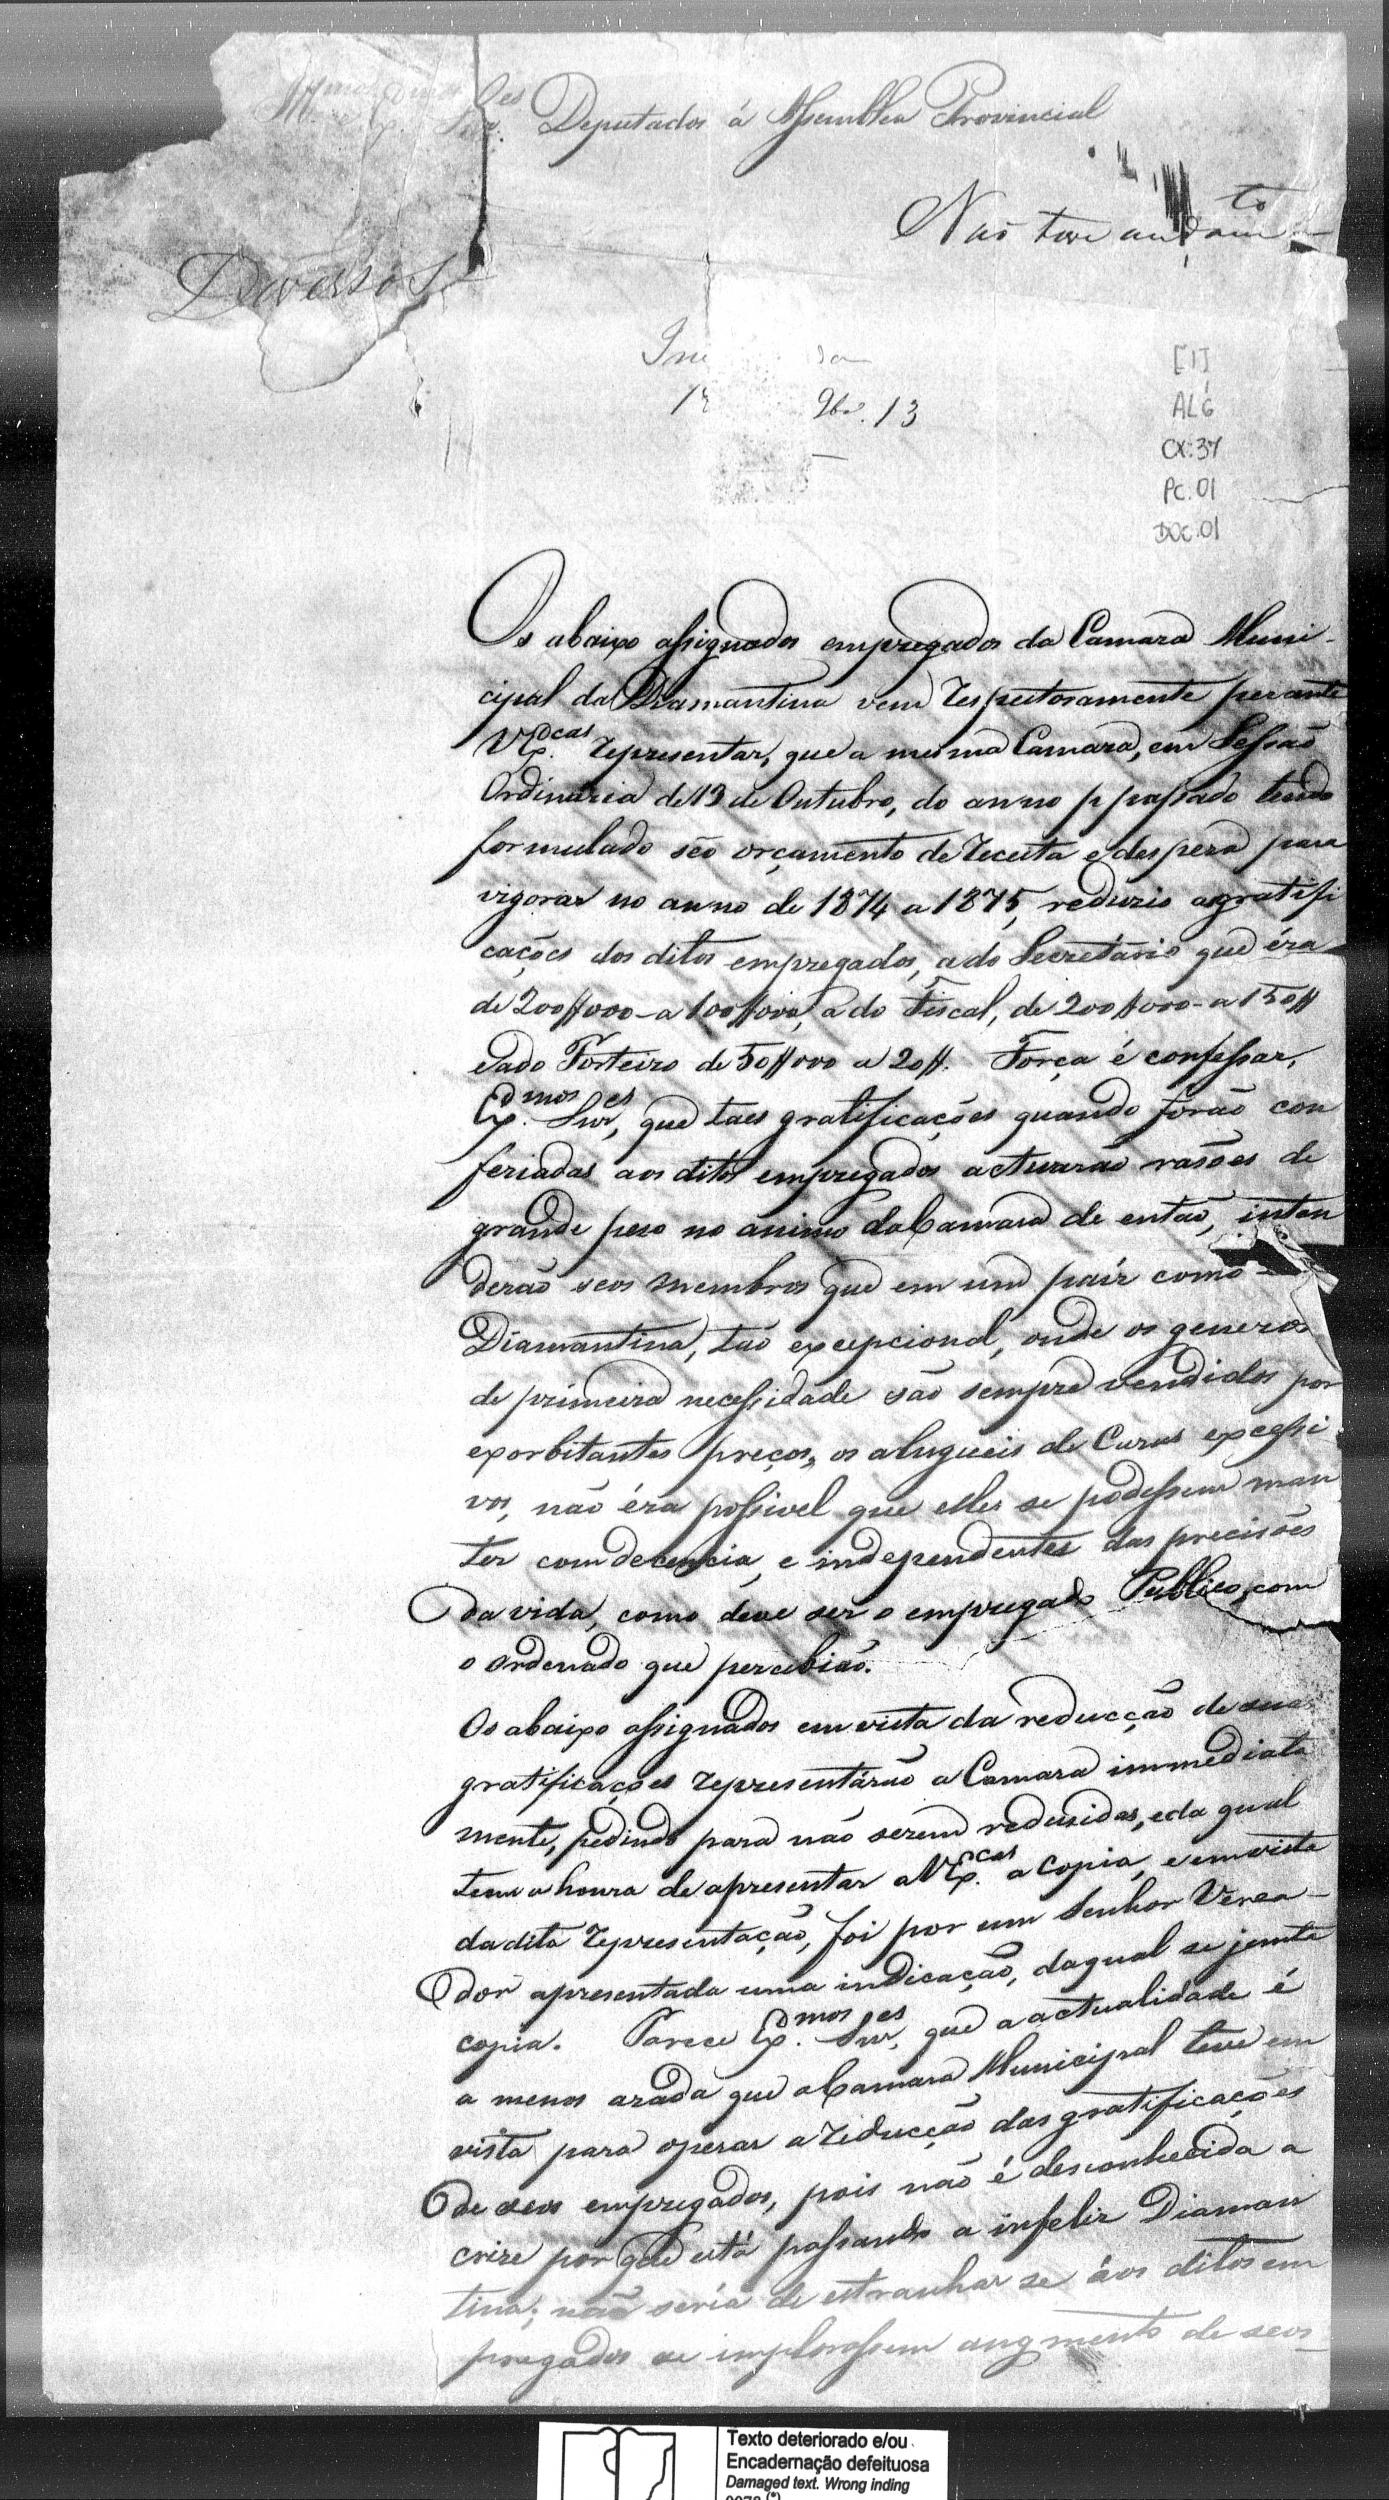 Ill.mos Ex.mos Snr.es Deputados á Assemblea Provincial
Não teve andam.to
Diversos
9br.o 13
[1]
ALG
CX:37
PC.01
DOC.01
Os abaixo assignados empregados da Camara Muni-
cipal da Diamantina vem respeitosamente perante
VEx.cas representar, que a mesma Camara, em Sessaõ
Ordinaria de 13 de Outubro, do anno p passado tendo
formulado séo orçamento de receita e despeza para
vigorar no anno de 1874 a 1875, reduzio a gratifi
cações dos ditos empregados, a do Secretario que éra
de 200$000 - a 100$000, a do Fiscal, de 200$000 - a 150$
e a do Porteiro de 50$000 a 20$. Força é confessar,
Ex.mos Snr.es, que taes gratificações quando forão con
feriadas aos ditos empregados actuarão rasões de
grande peso no animo da Camara de entaõ, inten
derão seos membros que em um paíz como
Diamantina, taõ excepcional, onde os generos
de primeira necessidade são sempre vendidos por
exorbitantes preços, os alugueis de Cazas excessi
vos, não éra possivel que elles se podessem man
ter com decencia, e independentes das precisões
da vida, como deve ser o empregado Publico, com
o ordenado que percebiaõ.
Os abaixo assignados em vista da reducção de suas
gratificações representáraõ a Camara immediata
mente, pedindo para naõ serem redusidas, e da qual
tem a honra de apresentar a VEx.cas a copia, e em vista
da dita representaçaõ, foi por um Senhor Verea-
dor apresentada uma indicaçaõ, da qual se junta
copia. Parece Ex.mos Snr.es, que a actualidade é
a menos azada que a Camara Municipal teve em
vista para operar a reducçaõ das gratificações
de seos empregados, pois naõ é desconhecida a
crize por que está passando a infeliz Diaman
tina; naõ seria de estranhar se áos ditos em
pregados se implorassem augmento de seos
Texto deteriorado e/ou
Encadernação defeituosa
Damaged text. Wrong inding